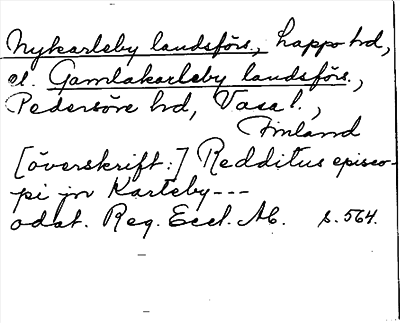 Nykarleby landsförs., Lappo hd,
el. Gamlakarleby landsförs.,
Pedersöre hd, Vasa l.,
Finland
[överskrift:] Redditus episco-
pi in Karleby---
odat. Reg. Eccl. Ab. s. 564.